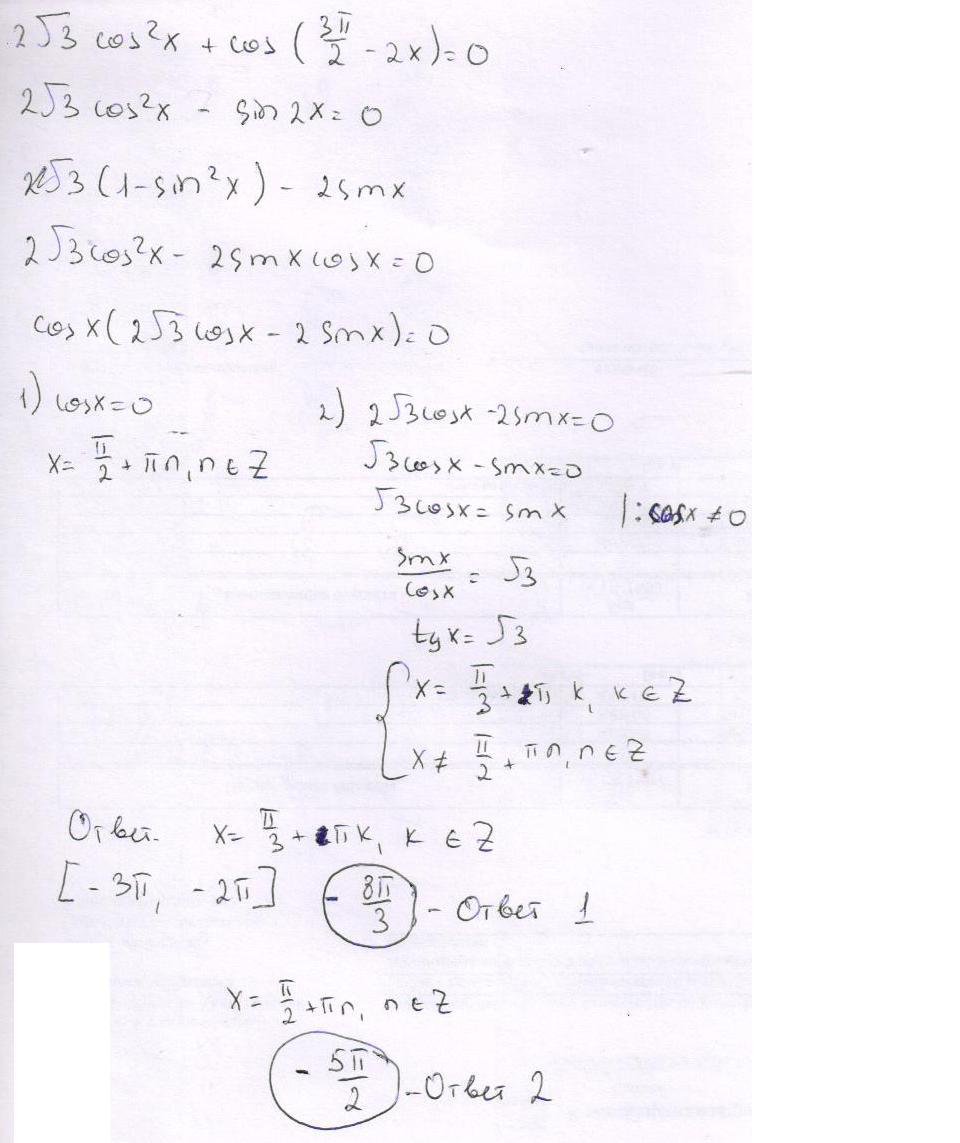 2√3 cos²x + cos (3π/2 - 2x) = 0
2√3 cos²x - sin 2x = 0
2√3 (1-sin²x) - 2sinx
2√3 cos²x - 2sinx cosx = 0
cosx(2√3 cosx - 2 sinx) = 0
1) cosx = 0
x = π/2 + πn, n ∈ Z
2) 2√3 cosx - 2sinx = 0
√3 cosx - sinx = 0
√3 cosx = sinx |: cosx ≠ 0
sinx/cosx = √3
tgx = √3
{ x = π/3 + πk, k ∈ Z
x ≠ π/2 + πn, n ∈ Z
Ответ. x = π/3 + πk, k ∈ Z
[-3π, -2π] -8π/3 - Ответ 1
x = π/2 + πn, n ∈ Z
-5π/2 - Ответ 2